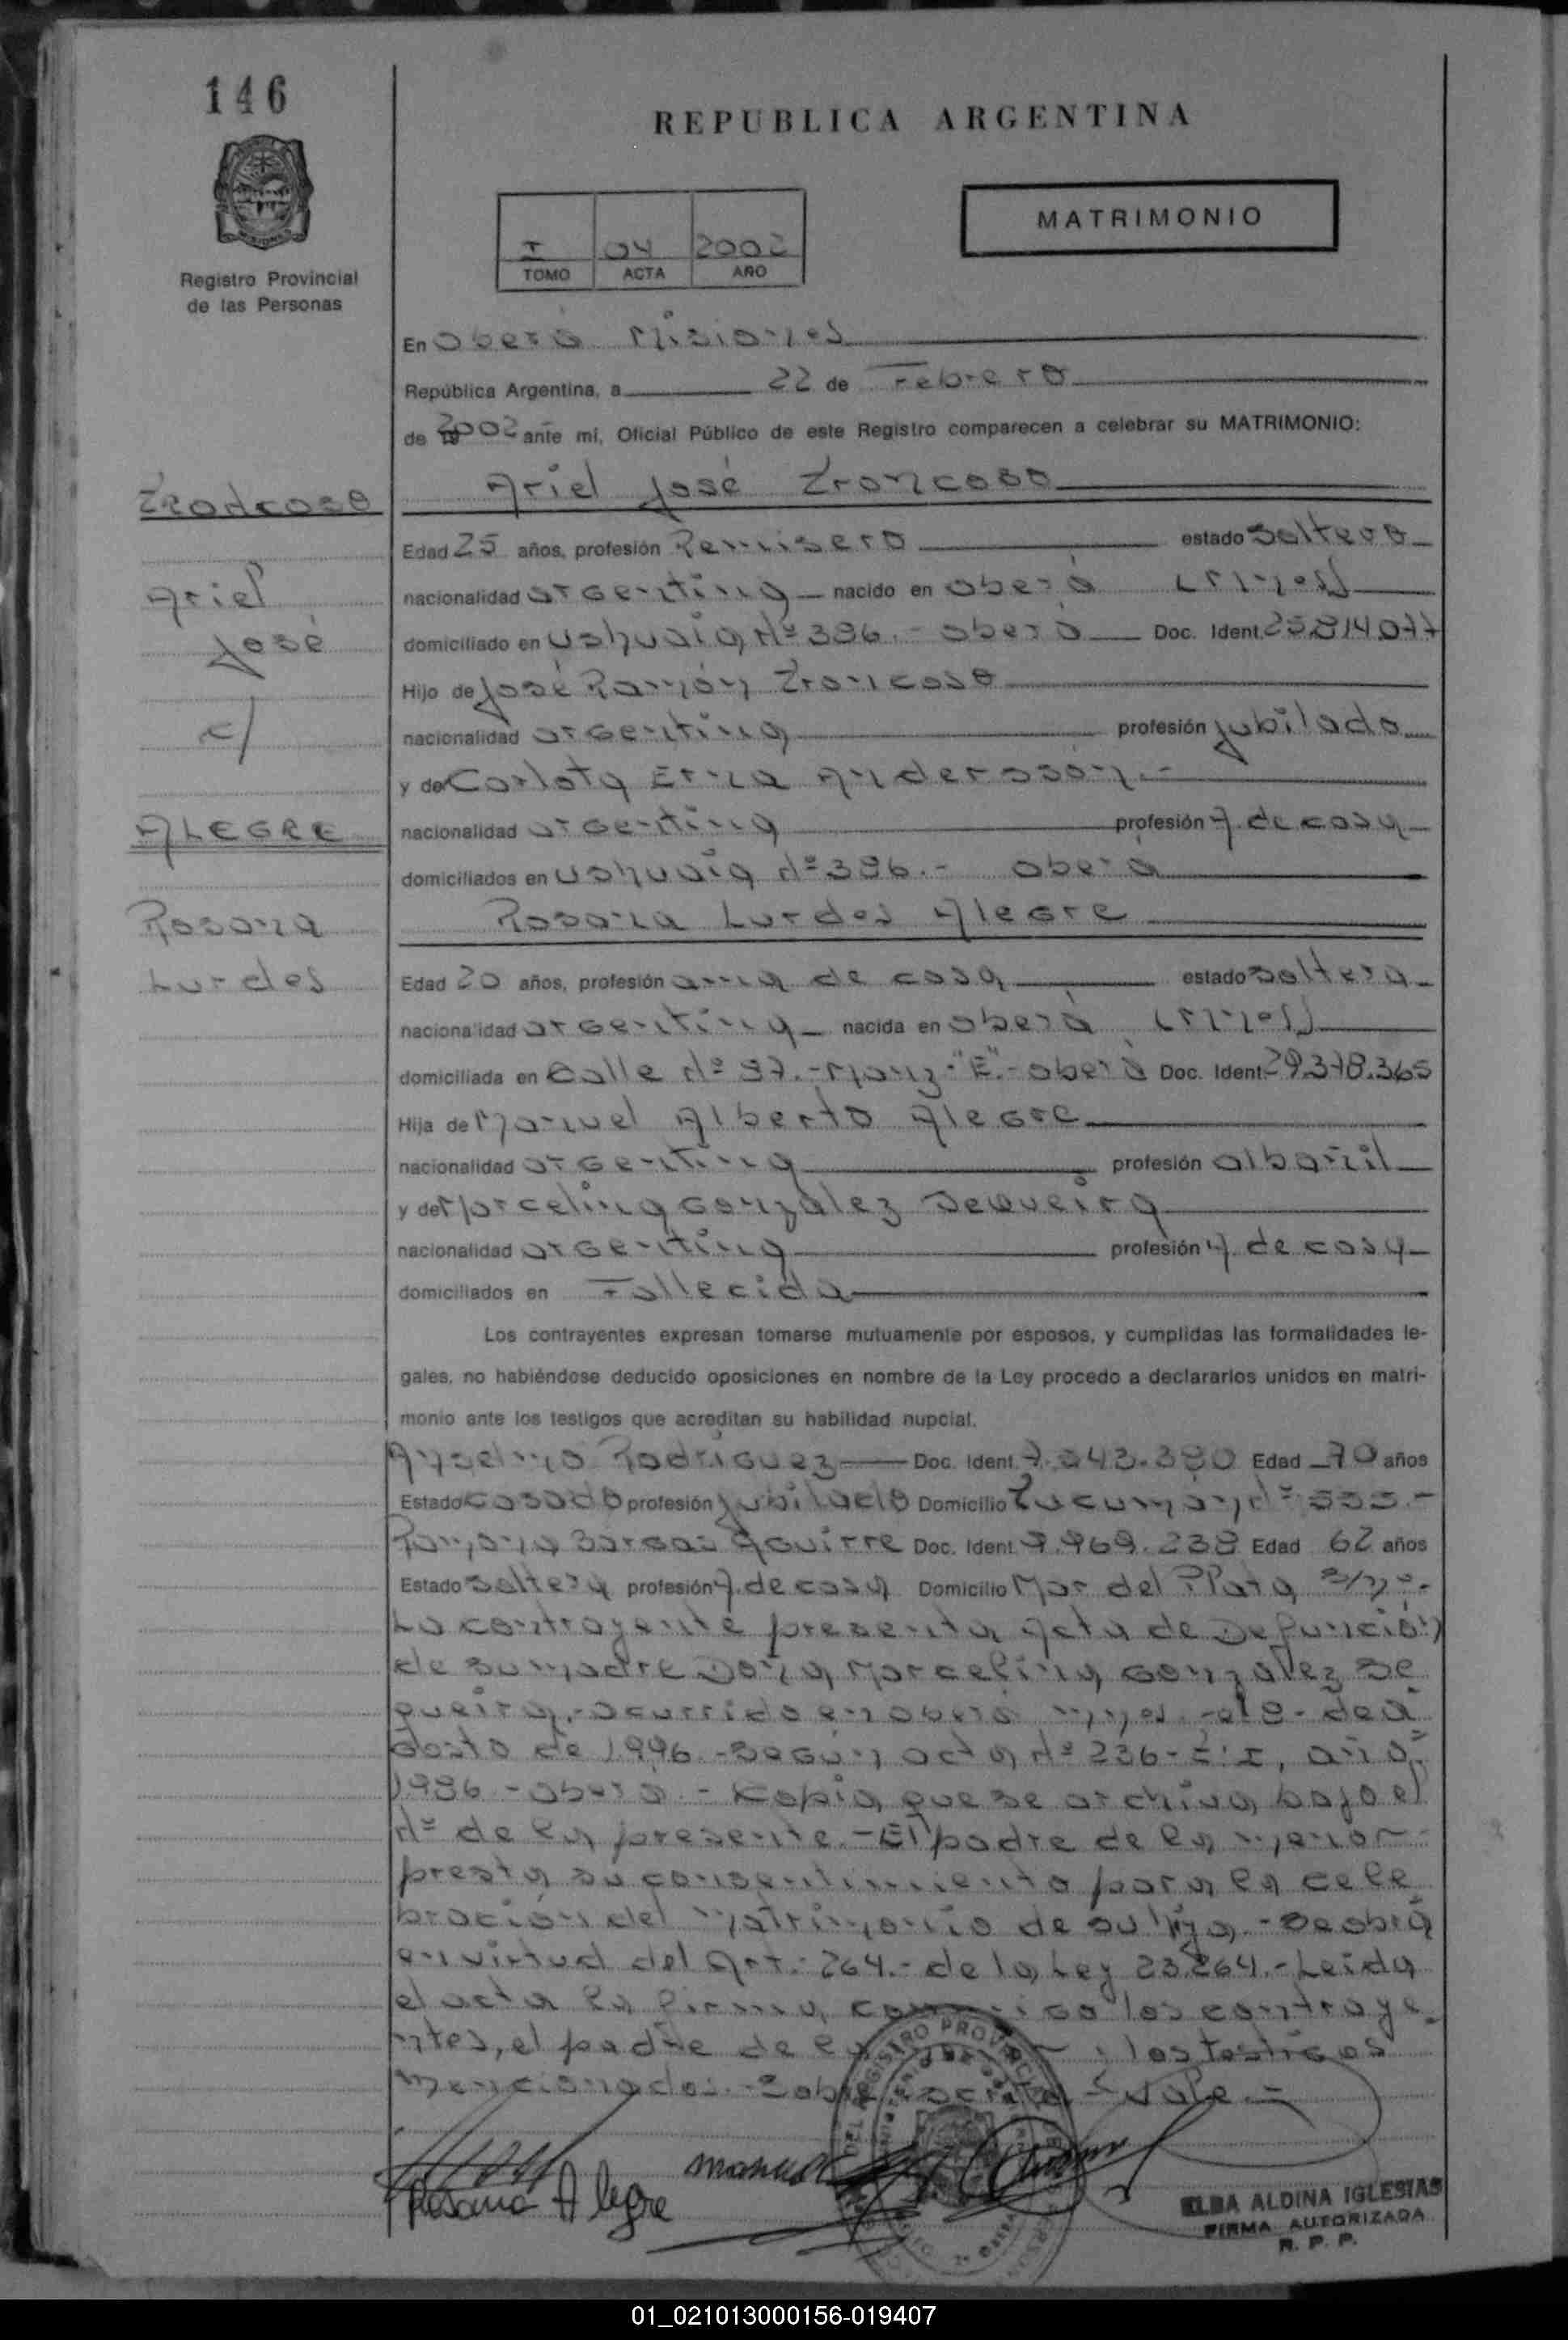 146
REPUBLICA ARGENTINA
MATRIMONIO
I 04 2002
TOMO ACTA AÑO
Registro Provincial
de las Personas
En Oberá Misiones
República Argentina, a 22 de Febrero
de 2002 ante mí, Oficial Público de este Registro comparecen a celebrar su MATRIMONIO:
Troncoso
Ariel
José
c/
ALEGRE
Rosana
Lurdes
Ariel José Troncoso
Edad 25 años, profesión Remisero estado soltero
nacionalidad argentina nacido en Oberá (Mnes)
domiciliado en Ushuaia Nº 396.- Oberá Doc. Ident. 25.814.077
Hijo de José Ramón Troncoso
nacionalidad argentina profesión jubilado
y de Carlota Erna Andersson.-
nacionalidad argentina profesión A. de casa
domiciliados en Ushuaia Nº 396.- Oberá
Rosana Lurdes Alegre
Edad 20 años, profesión ama de casa estado soltera
nacionalidad argentina nacida en Oberá (Mnes)
domiciliada en Calle Nº 97.- Manz "E".- Oberá Doc. Ident. 29.378.365
Hija de Manuel Alberto Alegre
nacionalidad argentina profesión albañil
y de Marcelina Gonzalez Sequeira
nacionalidad argentina profesión A. de casa
domiciliados en Fallecida
Los contrayentes expresan tomarse mutuamente por esposos, y cumplidas las formalidades le-
gales, no habiéndose deducido oposiciones en nombre de la Ley procedo a declararlos unidos en matri-
monio ante los testigos que acreditan su habilidad nupcial.
Anselmo Rodriguez Doc. Ident. Edad 70 años
Estado casado profesión jubilado Domicilio Tucumán Nº
Ramona Aguirre Doc. Ident. 9.969.238 Edad 62 años
Estado soltera profesión A. de casa Domicilio Mar del Plata s/nº.-
La contrayente presenta Acta de Defunción
de su madre Doña Marcelina Gonzalez Se
queira,- ocurrida en Oberá Mnes.- el 9- de a
gosto de 1996.- Según acta Nº 236- Tº I, año
1996 - Oberá.- Copia que se archiva bajo el
Nº de la presente.- El padre de la menor
presta su consentimiento para la cele
bración del matrimonio de su hija.- Se obra
en virtud del Art.: 264.- de la Ley 23.264.- Leída
el acta la firman conmigo los contraye
ntes, el padre de la los testigos
mencionados.- Sobre Vale.-
Rosana Alegre
Manuel
ELBA ALDINA IGLESIAS
FIRMA AUTORIZADA
R. P. P.
01_021013000156-019407